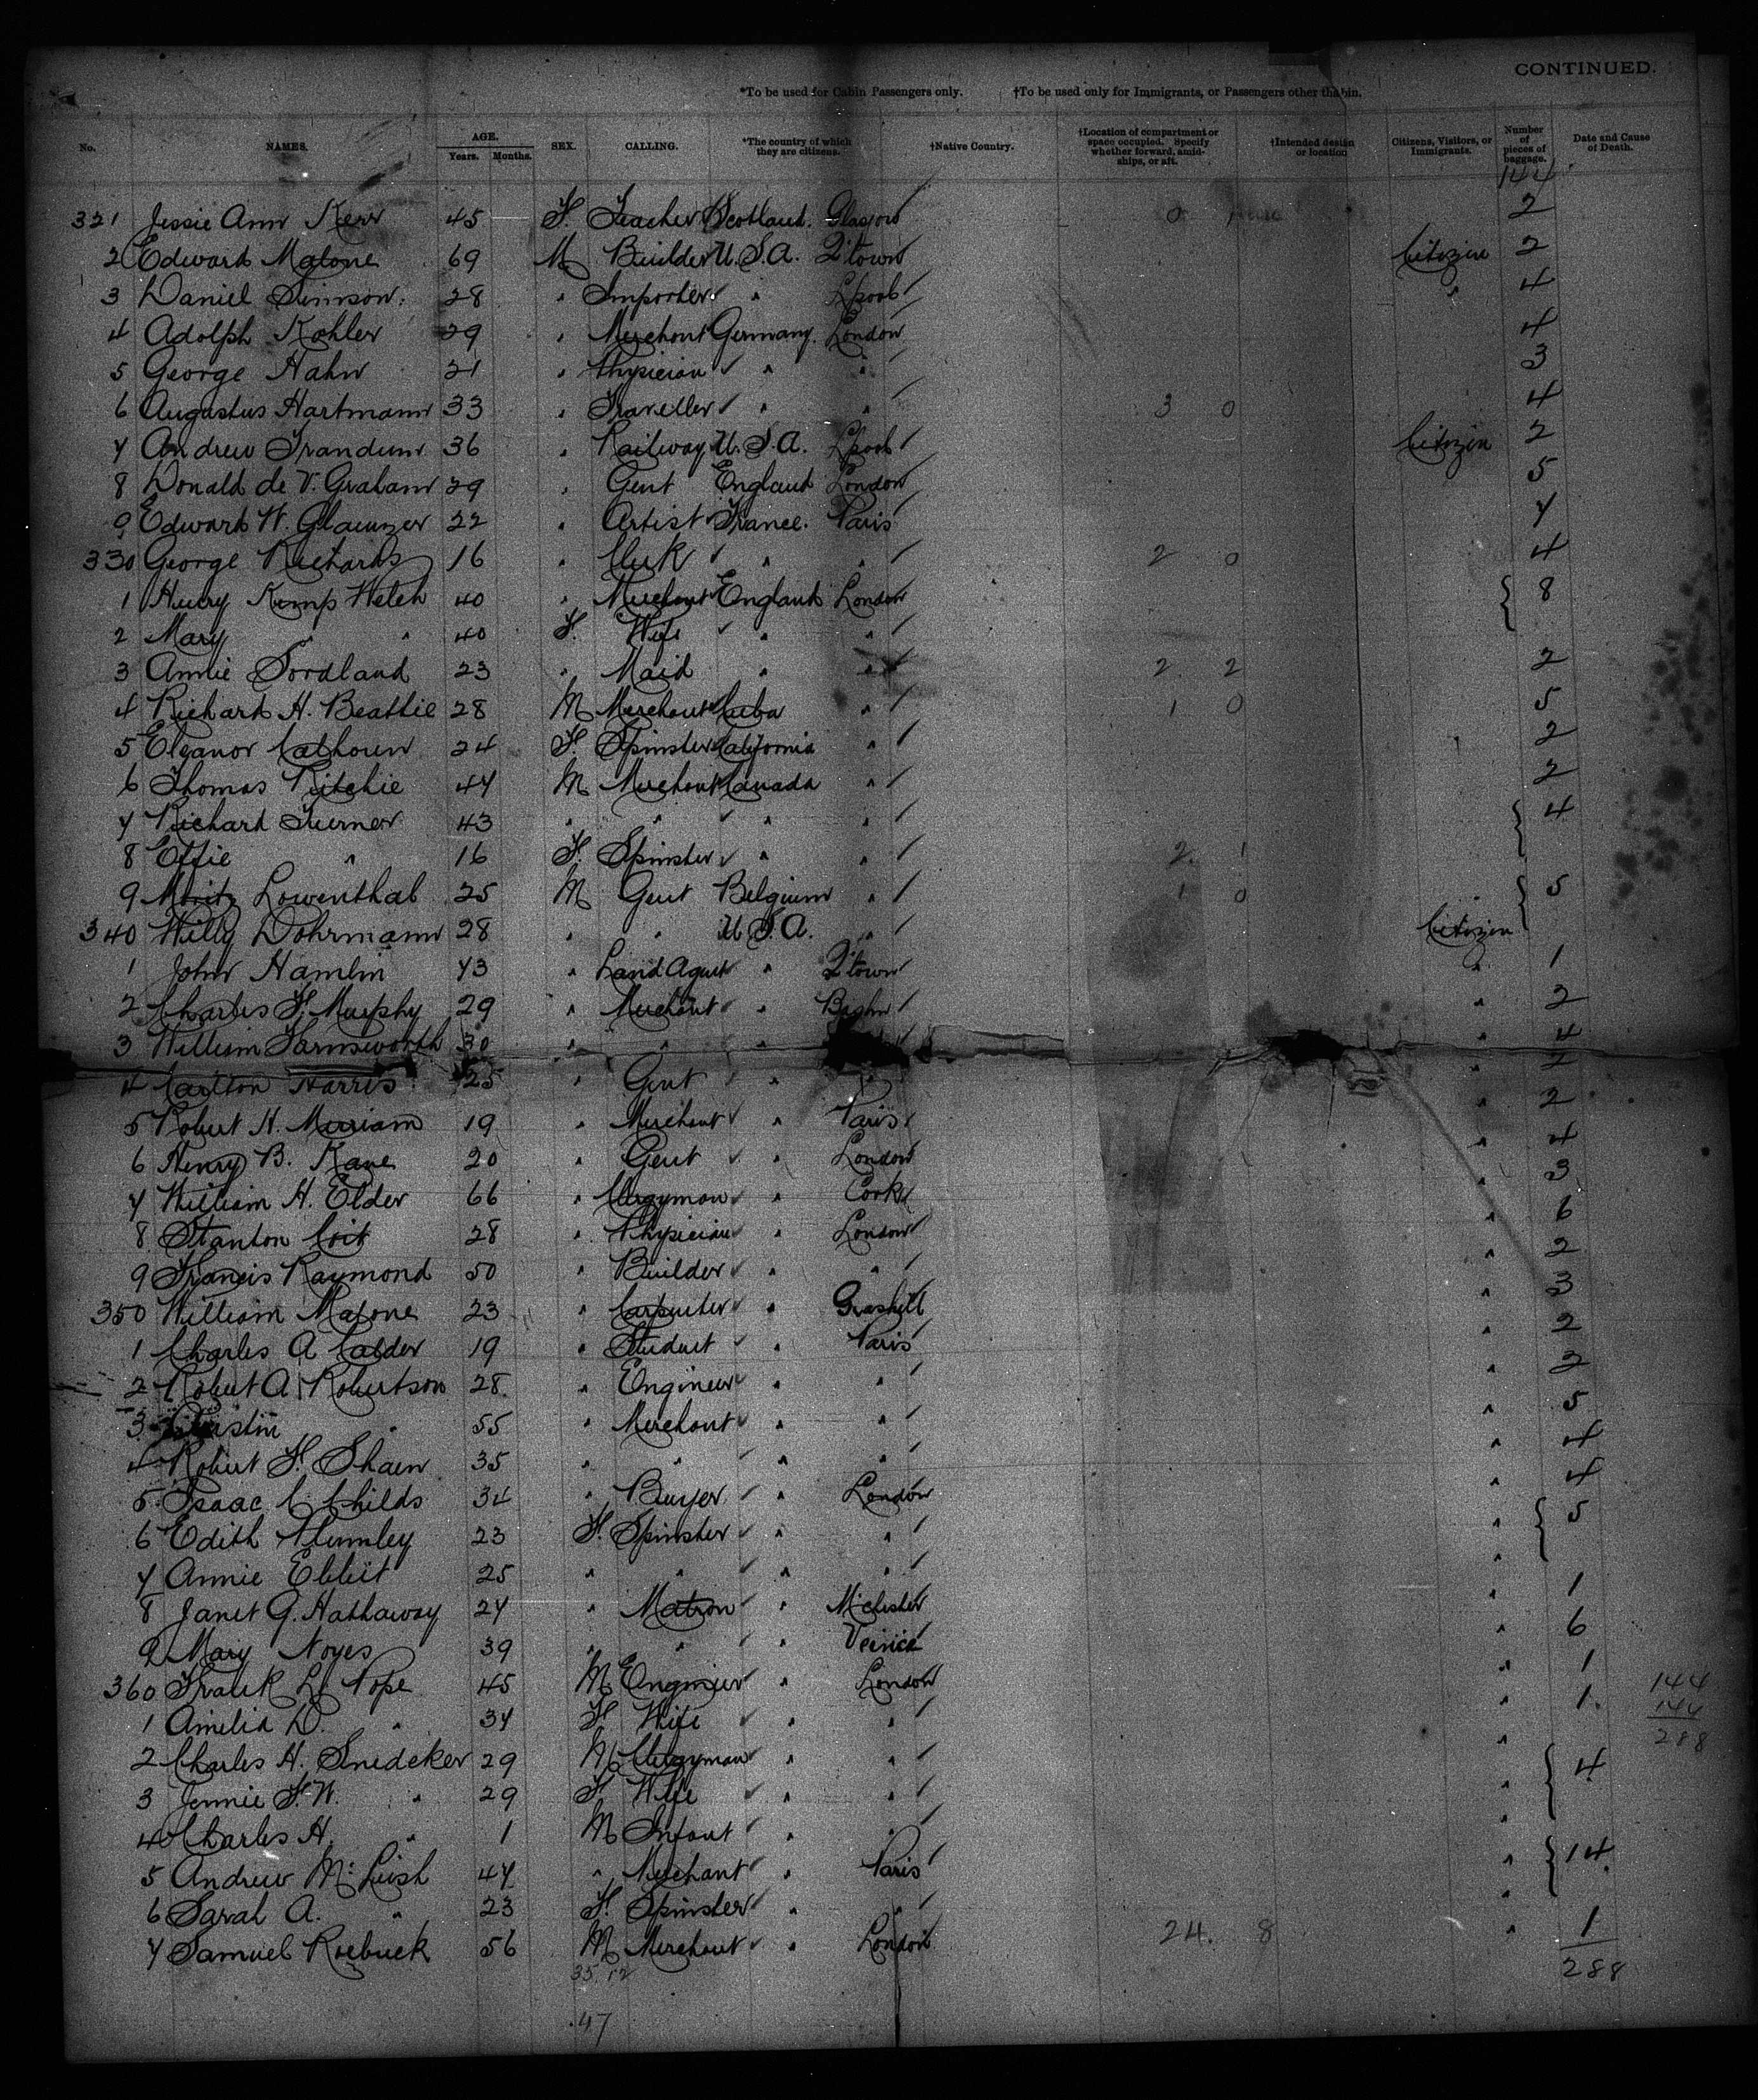 CONTINUED.
*To be used for Cabin Passengers only. †To be used only for Immigrants, or Passengers other tha bin.
No. NAMES. AGE. Years. Months. SEX. CALLING. *The country of which they are citizens. †Native Country. †Location of compartment or space occupied. Specify whether forward, amidships, or aft. †Intended destin or location Citizens, Visitors, or Immigrants. Number of pieces of baggage. Date and Cause of Death.
144
321 Jessie Ann Kerr 45 F. Teacher Scotland. Glasgow 0 1 2
2 Edward Malone 69 M Builder U.S.A. Q'town Citizen 2
3 Daniel Simson. 28 " Importer " Lpool " 4
4 Adolph Kohler 29 " Merchant Germany. London 4
5 George Hahn 21 " Physician " " 3
6 Augustus Hartmann 33 " Traveller " " 3 0 4
7 Andrew Trandum 36 " Railway U.S.A. Lpool Citizen 2
8 Donald de V. Graham 29 " Gent England London 5
9 Edward W. Glaenzer 22 " Artist France. Paris 7
330 George Richards 16 " Clerk " " 2 0 4
1 Henry Kemp Welch 40 " Merchant England London 8
2 Mary " " 40 F. Wife " "
3 Annie Sordland 23 " Maid " " 2 2 2
4 Richard H. Beattie 28 M Merchant Cuba " 1 0 5
5 Eleanor Calhoun 24 F. Spinster California " 2
6 Thomas Ritchie 47 M Merchant Canada " 2
7 Richard Turner 43 " " " " 4
8 Effie " 16 F. Spinster " " 2. 1
9 Moritz Lowenthal 25 M Gent Belgium " 1 0 5
340 Willy Dohrmann 28 " " U.S.A. " Citizen
1 John Hamlin 73 " Land Agent " Q'town " 1
2 Charles F. Murphy 29 " Merchant " " 2
3 William Farnsworth 30 " " " " 4
4 Carlton Harris 25 " Gent " " " 2
5 Robert H. Merriam 19 " Merchant " Paris " 2
6 Henry B. Kane 20 " Gent " London " 4
7 William H. Elder 66 " Clergyman " Cork " 3
8 Stanton Coit 28 " Physician " London " 6
9 Francis Raymond 50 " Builder " " " 2
350 William Malone 23 " Carpenter " " 3
1 Charles A Calder 19 " Student " Paris " 2
2 Robert A. Robertson 28. " Engineer " " " 2
3 " 55 " Merchant " " " 5
4 Robert F. Shaen 35 " " " " " 4
5 Isaac C. Childs 34 " Buyer " London " 4
6 Edith Plumley 23 F. Spinster " " " 5
7 Annie Ebbit 25 " " " " "
8 Janet G. Hathaway 27 " Matron " M'chester " 1
9 Mary Noyes 39 " " " Venice " 6
360 Frank L. Pope 45 M Engineer " London " 1
1 Amelia D. " 37 F Wife " " " 1.
2 Charles H. Snedeker 29 M Clergyman " " " 4
3 Jennie F.W. " 29 F. Wife " " "
4 Charles H. " 1 M Infant " " "
5 Andrew McLeish 47 " Merchant " Paris " 14
6 Sarah A. " 23 F. Spinster " " "
7 Samuel Roebuck 56 M Merchant " London 24. 8 " 1
144
144
288
35. 12
288
47